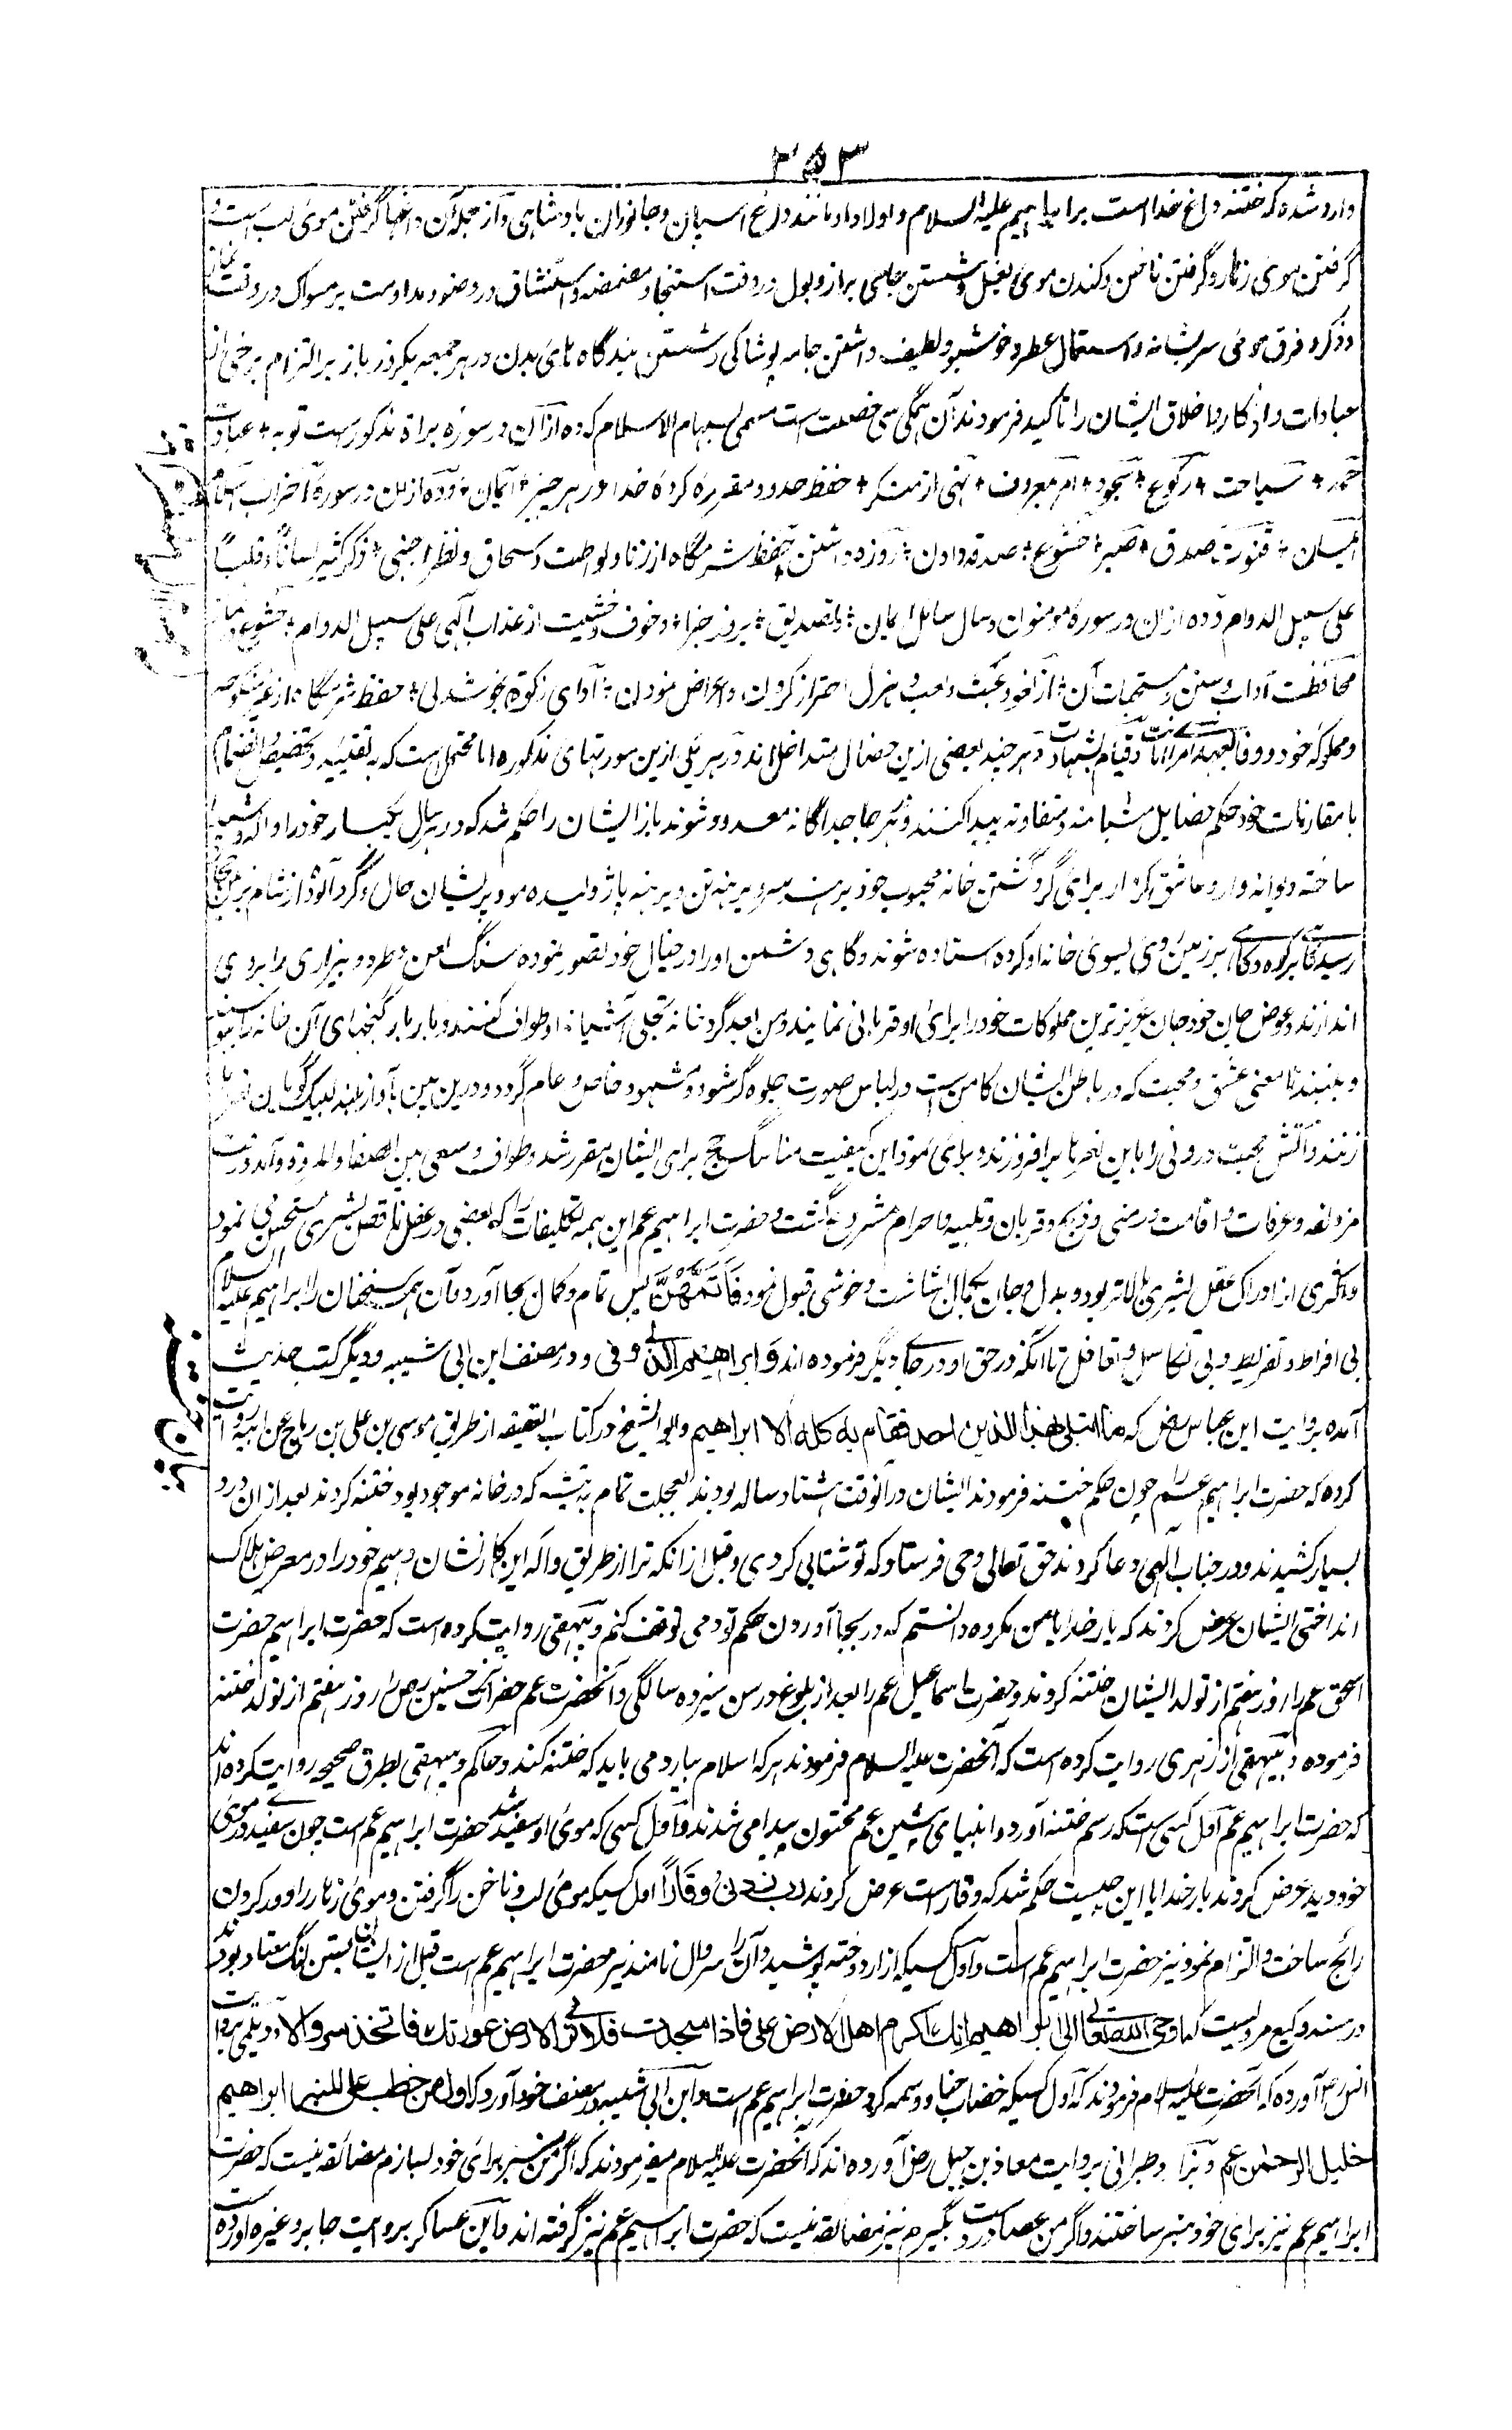 ۳۵۳
وارد شده که ختنه داغ خداست برابراهیم علیه السلام و اولاد او مانند داغ اسپان و جانوران بادشاهی و از جمله آن داغها گرفتن موی لب است و
گرفتن موی زهار و گرفتن ناخن و کندن موی بغل و شستن جای براز و بول در وقت استنجا و مضمضه و استنشاق در وضو و مداومت بر مسواک در وقت نماز
و ذکر و فرق موی سر بشانه و استعمال عطر و خوشبو و لطیف داشتن جامه پوشاکی و شستن بندگاه های بدن در هر جمعه یکروز باز بر التزام برخی از
عبادات و اذکار و اخلاق ایشان را تاکید فرمودند آن همگی سی خصلت است مسمی بسهام الاسلام که ده از آن در سوره براة مذکورست توبه عبادت
حمد سیاحت رکوع سجود امر بمعروف نهی از منکر حفظ حدود مقرره کرده خدا در هر چیز ایمان و ده ازان در سورة احزاب اسلام
ایمان قنوت صدق صبر خشوع صدقه دادن روزه داشتن حفظ شرمگاه از زنا و لواطت و سحاق و نظر اجنبی ذکر کثیر لسانًا و قلبًا
علی سبیل الدوام و ده ازان در سورة مومنون و سال سائل ایمان و تصدیق بروز جزا و خوف و خشیت از عذاب الهی علی سبیل الدوام خشوع در نماز
محافظت آداب و سنن و مستحبات آن از لغو و عبث و لعب و هزل احتراز کردن و اعراض نمودن ادای زکوة بخوشدلی حفظ شرمگاه از غیر منکوحه
و مملوکه خود و وفا بعهد امر امانت و قیام بشهادت و هر چند بعضی ازین خصال متداخل اند در هر یکی ازین سورتهای مذکوره اما محتمل ست که به تقیید و تخصیص و انضمام
با مقارنات خود حکم خصایل متباینه و متفاوته پیدا کنند و هر جا جداگانه معدود شوند باز ایشان را حکم شد که در هر سال یکبار خود را واله و شیدا
ساخته دیوانه وار و عاشق کردار برای گرد گشتن خانه محبوب خود برهنه سر و برهنه تن و برهنه پا ژولیده مو و پریشان حال و گرد آلود از شام بزمین حجاز
رسیده گاهی بر کوه و گاهی بر زمین روی بسوی خانه او کرده استاده شوند و گاهی دشمن او را در خیال خود تصور نموده سنگ لعن و طرد و بیزاری برابر وی
اندازند و عوض جان خود جان عزیز ترین مملوکات خود را برای او قربانی نمایند و من بعد گرد خانه تجلی آشیانه او طواف کنند و بار بار کنجهای آن خانه را ببوسند
و بلیسند تا معنی عشق و محبت که در باطن ایشان کامن ست در لباس صورت جلوه گر شود و مشهود خاص و عام گردد و درین بین بآواز بلند لبیک گویان نعره ها
زنند و آتش محبت درونی را باین نعره ها برافروزند و برای نمود این کیفیت مناسک حج برای ایشان مقرر شد و طواف و سعی بین الصفا و المروة و آمد و رفت
مزدلفه و عرفات و اقامت در منی و ذبح و قربان و تلبیه و احرام مشروع گشت و حضرت ابراهیم عم این همه تکلیفات را که بعضی در عقل ناقص بشری مستحسن می نمود
و اکثری از ادراک عقل بشری بالاتر بود و بدل و جان بکمال بشاشت و خوشی قبول نمود فَاَتَمَّهُنَّ پس تمام و کمال بجا آورد آن همه سخنان را ابراهیم علیه السلام
بی افراط و تفریط و بی تکاسل و تغافل تا آنکه در حق او در جای دیگر فرموده اند و ابراهیم الذی وفی و در مصنف ابن ابی شیبه و دیگر کتب حدیث
آمده بروایت ابن عباس رض که ما ابتلی بهذا الدین احد فقام به کله الا ابراهیم و ابو الشیخ در کتاب العقیقه از طریق موسی بن علی بن رباح عن ابیه روایت
کرده که حضرت ابراهیم عم را چون حکم ختنه فرمودند ایشان در آنوقت هشتاد ساله بودند بعجلت تمام به تیشه که در خانه موجود بود ختنه کردند بعد از ان درد
بسیار کشیدند و در جناب الهی دعا کردند حق تعالی وحی فرستاد که تو شتابی کردی و قبل از انکه ترا از طریق و آله این کار نشان دهیم خود را در معرض هلاک
انداختی ایشان عرض کردند که بار خدایا من مکروه دانستم که در بجا آوردن حکم تو دمی توقف کنم و بیهقی روایت کرده است که حضرت ابراهیم حضرت
اسحق عم را روز هفتم از تولد ایشان ختنه کردند و حضرت اسماعیل عم را بعد از بلوغ در سن سیزده سالگی و آنحضرت عم حضرات حسنین رض را روز هفتم از تولد ختنه
فرموده و بیهقی از زهری روایت کرده است که آنحضرت علیه السلام فرمودند هر که اسلام بیارد می باید که ختنه کند و حاکم و بیهقی بطرق صحیحه روایت کرده اند
که حضرت ابراهیم عم اول کسی ست که رسم ختنه آورد و انبیای پیشین عم مختون پیدا می شدند و اول کسی که موی او سفید شد حضرت ابراهیم عم است چون سفیدی در موی
خود دید عرض کردند بار خدایا این چیست حکم شد که وقارست عرض کردند رب زدنی وقارًا اول کسیکه موی لب و ناخن را گرفتن و موی زهار را دور کردن
رائج ساخت و التزام نمود نیز حضرت ابراهیم عم است و اول کسیکه ازار دوخته پوشید و آن را سروال نامند نیز حضرت ابراهیم عم است قبل از ایشان بستن لنگ معتاد بود
در مسند وکیع مرویست که اوحی الله تعالی الی ابراهیم انک اکرم اهل الارض علی فاذا سجدت فلا تری الارض عورتک فاتخذ سروالا و دیلمی بروایت
انس رض آورده که آنحضرت علیه السلام فرمودند که اول کسیکه خضاب حنا و وسمه کرد حضرت ابراهیم عم است و ابن ابی شیبه در مصنف خود آورد که اول من خطب علی المنبر ابراهیم
خلیل الرحمن عم و بزار و طبرانی بروایت معاذ بن جبل رض آورده اند که آنحضرت علیه السلام میفرمودند که اگر من منبر برای خود بسازم مضائقه نیست که حضرت
ابراهیم عم نیز برای خود منبر ساختند و اگر من عصا در دست بگیرم نیز مضائقه نیست که حضرت ابراهیم عم نیز گرفته اند و ابن عساکر بروایت جابر و غیره آورده